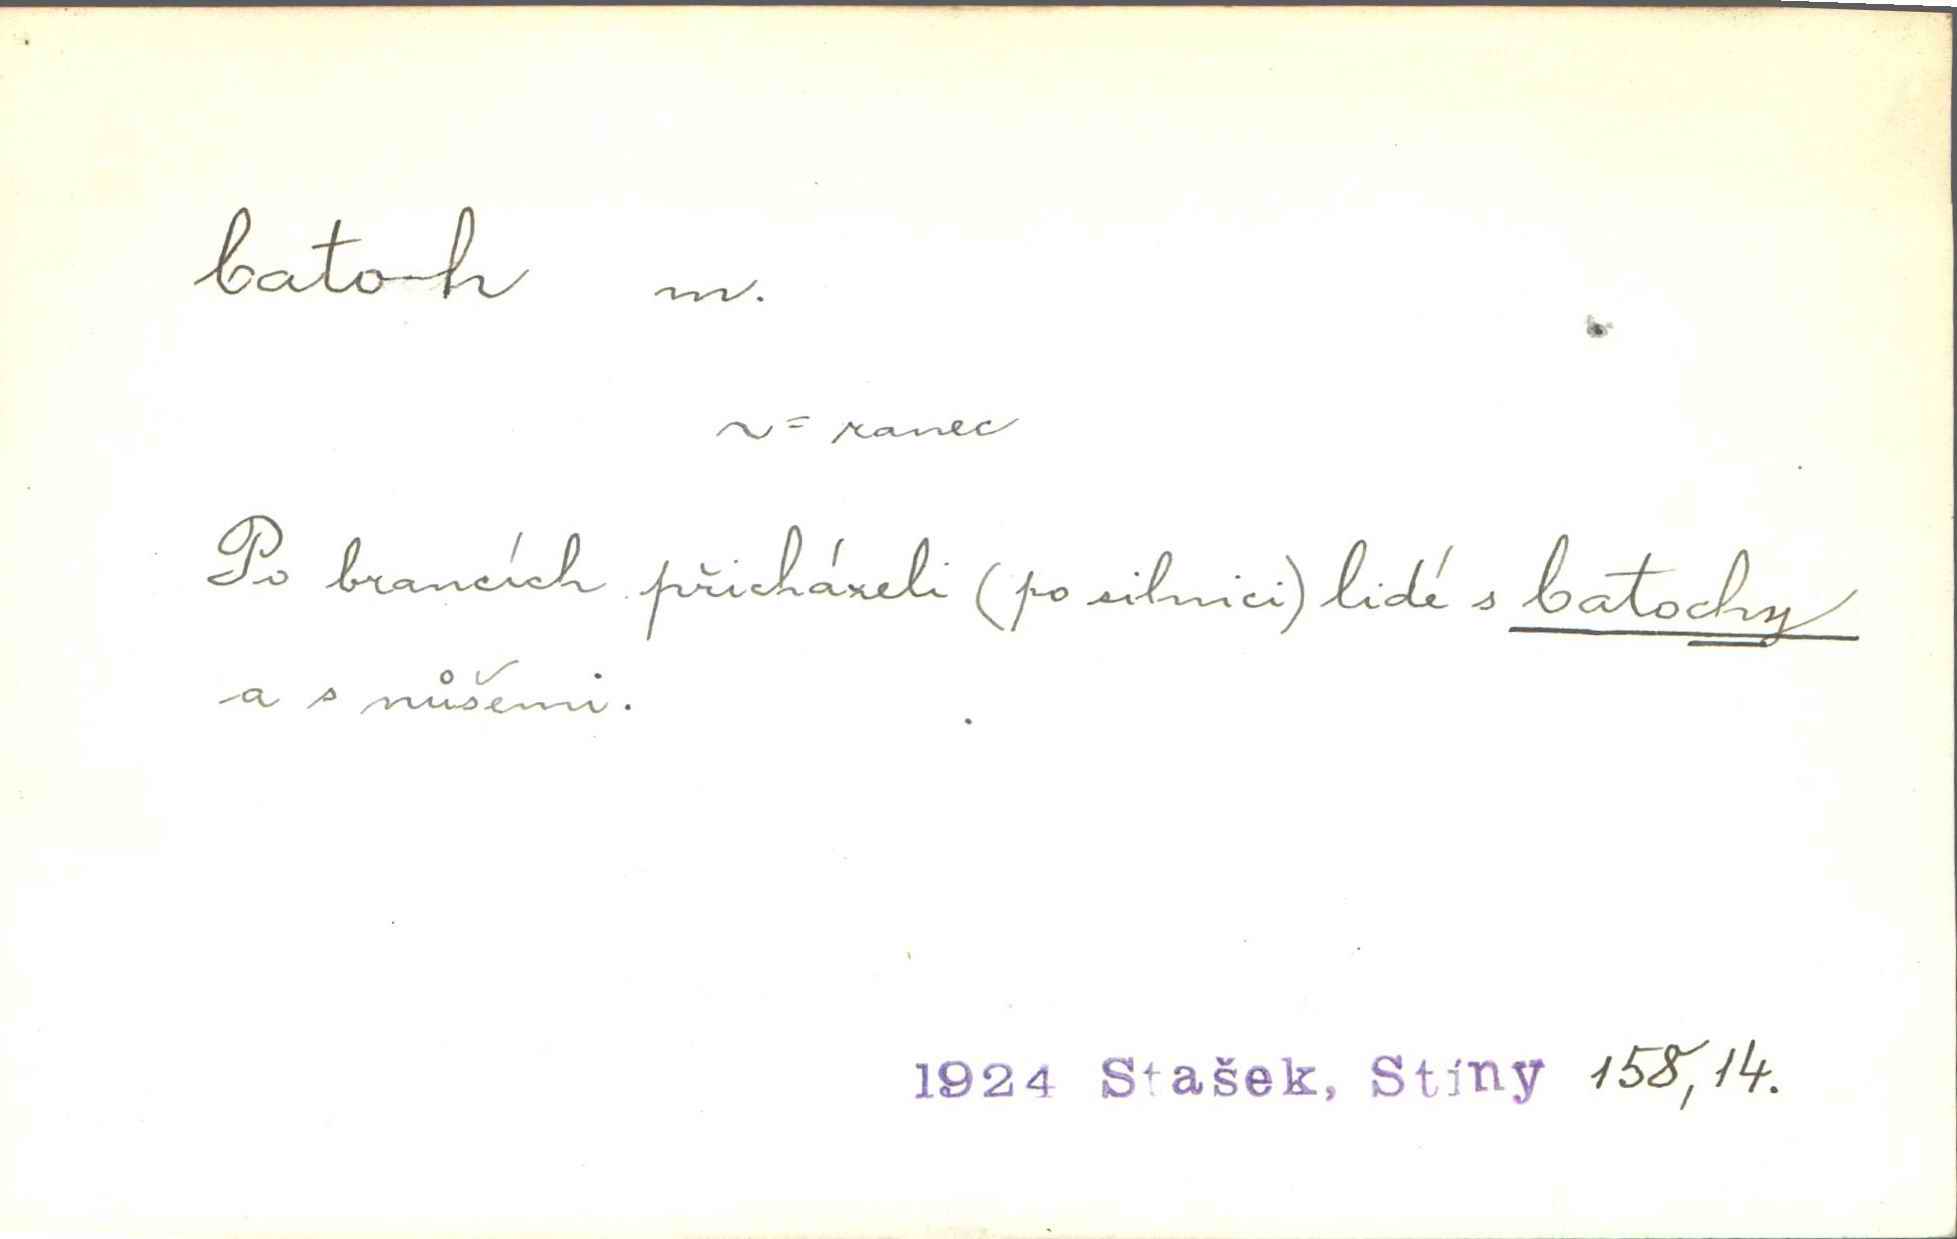 batoh m.
~ = ranec
Po brancích přicházeli (po silnici) lidé s batochy
a s nůšemi.
1924 Stašek, Stíny 158,14.